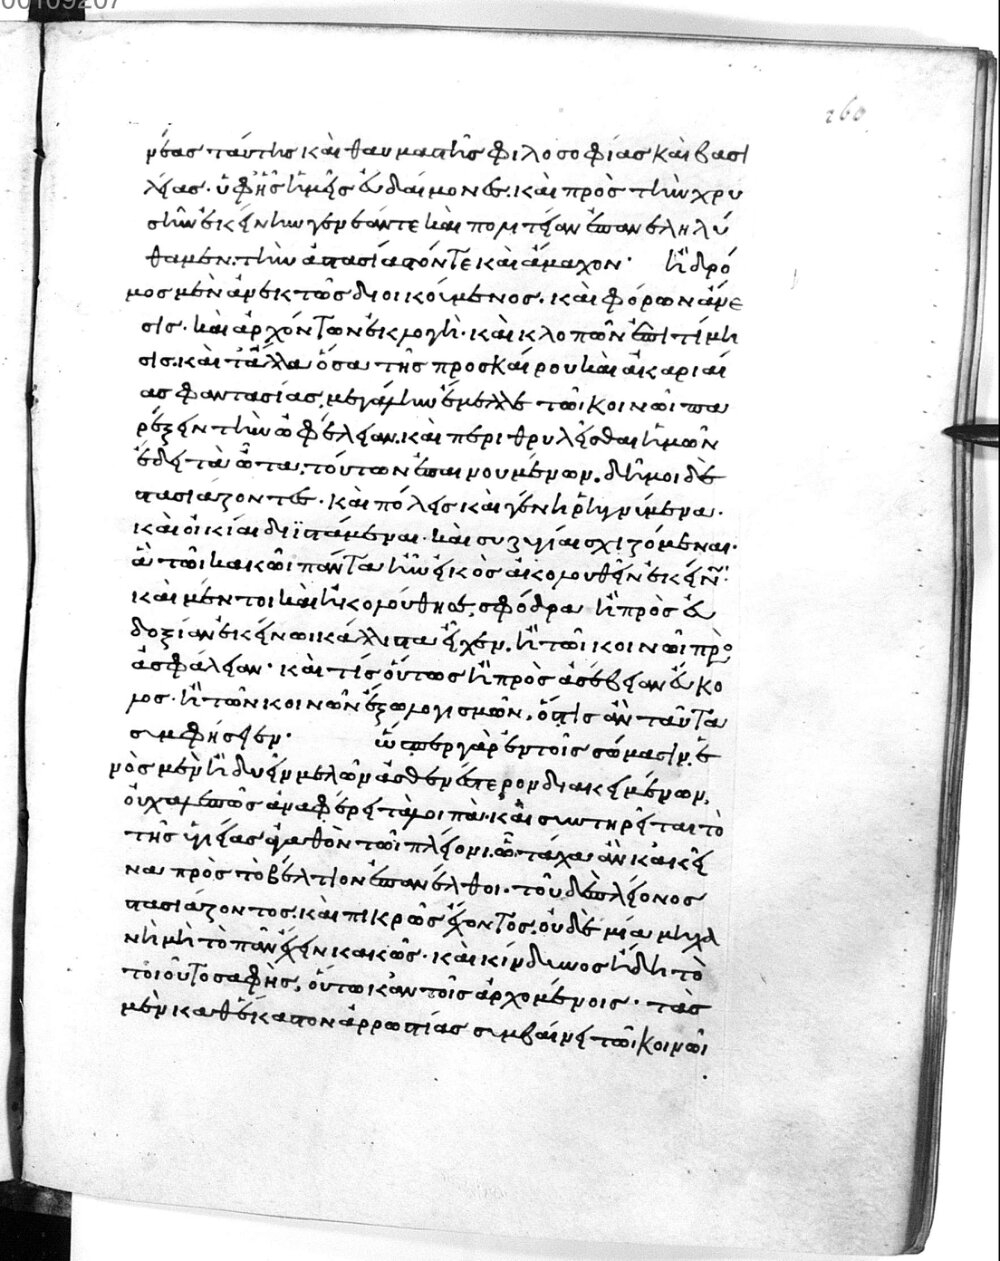 00109207
260
νέας ταύτης καὶ θαυμαστῆς φιλοσοφίας καὶ βασι
λείας. ὑφ' ἧς ἡμεῖς εὐδαίμονες. καὶ πρὸς τὴν χρυ
σῆν ἐκείνην γενεὰν τε καὶ πολιτείαν ἐπανεληλύ
θαμεν. τὴν ἀστασίαστόν τε καὶ ἄμαχον. ἢ δρό
μος μὲν ἀνεκτῶς διοικούμενος. καὶ φόρων ἄνε
σις. καὶ ἀρχόντων ἐκλογὴ. καὶ κλοπῶν ἐπιτίμη
σις. καὶ τἄλλα ὅσα τῆς προσκαίρου καὶ ἀκαριαί
ας φαντασίας, μεγάλην ἔμελλε τῶι κοινῶι πα
ρέξειν τὴν ὠφέλειαν. καὶ περιθρυλεῖσθαι ἡμῶν
ἔδει τὰ ὦτα, τούτων ἐπαινουμένων. δῆμοι δὲ
στασιάζοντες. καὶ πόλεις καὶ γένη ῥηγνύμενα.
καὶ οἰκίαι διϊστάμεναι. καὶ συζυγίαι σχιζόμεναι.
ἃ τῶι κακῶι πάντα ἦν εἰκὸς ἀκολουθεῖν ἐκείνῳ.
καὶ μέντοι καὶ ἠκολούθησε, σφόδρα ἢ πρὸς εὐ
δοξίαν ἐκείνωι κάλλιστα ἔχειν. ἢ τῶι κοινῶι πρὸς
ἀσφάλειαν. καὶ τίς οὕτως ἢ πρὸς ἀσέβειαν εὔκο
λος. ἢ τῶν κοινῶν ἔξω λογισμῶν, ὅστις ἂν ταῦτα
συμφήσειεν. ὥσπερ γὰρ ἐν τοῖς σώμασιν, ἑ
νὸς μὲν ἢ δυεῖν μελῶν ἀσθενέστερον διακειμένων,
οὐ χαλεπῶς ἀναφέρει τὰ λοιπὰ. καὶ συντηρεῖται τὸ
τῆς ὑγιείας ἀγαθὸν τῶι πλείονι. ὧι τάχα ἂν κἀκεῖ
να πρὸς τὸ βέλτιον ἐπανέλθοι. τοῦ δὲ πλείονος
στασιάζοντος. καὶ πικρῶς ἔχοντος, οὐδὲ μία μηχα
νὴ μὴ τὸ πᾶν ἔχειν κακῶς. καὶ κίνδυνος ἤδη τὸ
τοιοῦτο σαφὴς, οὕτω κἀν τοῖς ἀρχομένοις. τὰς
μὲν καθ' ἕκαστον ἀρρωστίας συμβαίνει τῶι κοινῶι